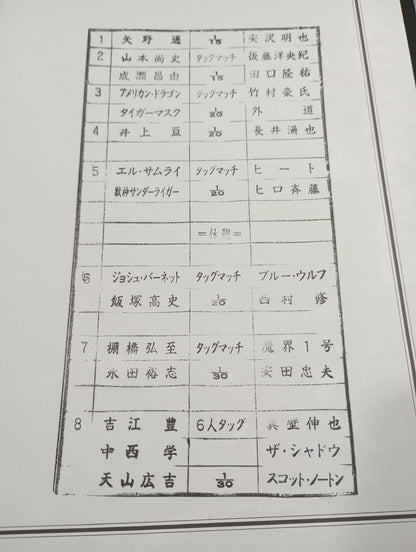 1 矢野通 1/15 安沢明也
2 山本尚史 タッグマッチ 後藤洋央紀
成瀬昌由 1/15 田口隆祐
3 アメリカン・ドラゴン タッグマッチ 竹村豪氏
タイガーマスク 1/20 外道
4 井上亘 1/20 長井満也
5 エル・サムライ タッグマッチ ヒート
獣神サンダーライガー 1/20 ヒロ斉藤
=休憩=
6 ジョシュ・バーネット タッグマッチ ブルー・ウルフ
飯塚高史 1/20 西村修
7 棚橋弘至 タッグマッチ 魔界1号
永田裕志 1/30 安田忠夫
8 吉江豊 6人タッグ 真壁伸也
中西学 ザ・シャドウ
天山広吉 1/30 スコット・ノートン